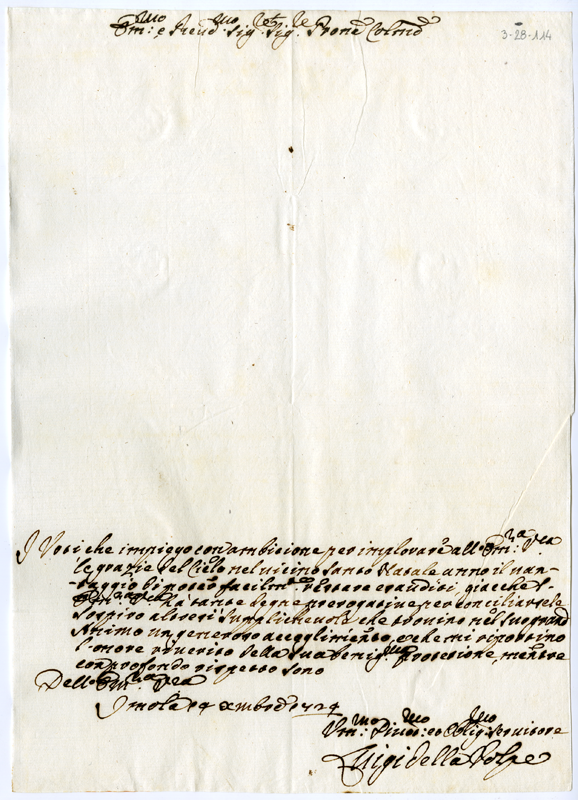 Em:mo e Rever:mo Sig:re Sig:re Prone Colmo
3-28-114
I Voti che impiego con ambizione per implorare all'Em:za Vra
le grazie del Cielo nel vicino Santo Natale anno il van-
-taggio di poter facilmte restare esauditi, giacche l'
Em:za Vra hà tante degne prerogative per conciliarsele
Sospiro altresì Supplichevole che trovino nel Suo grand'
Animo un generoso accoglimento, e che mi riportino
l'onore riverito della Sua benig:ma Protezione, mentre
con profondo rispetto sono
Dell'Em:za Vra
Imola 14 Xmbre 1724
Vm:mo Divot:mo ed Oblig:mo Servitore
Luigi della Volpe